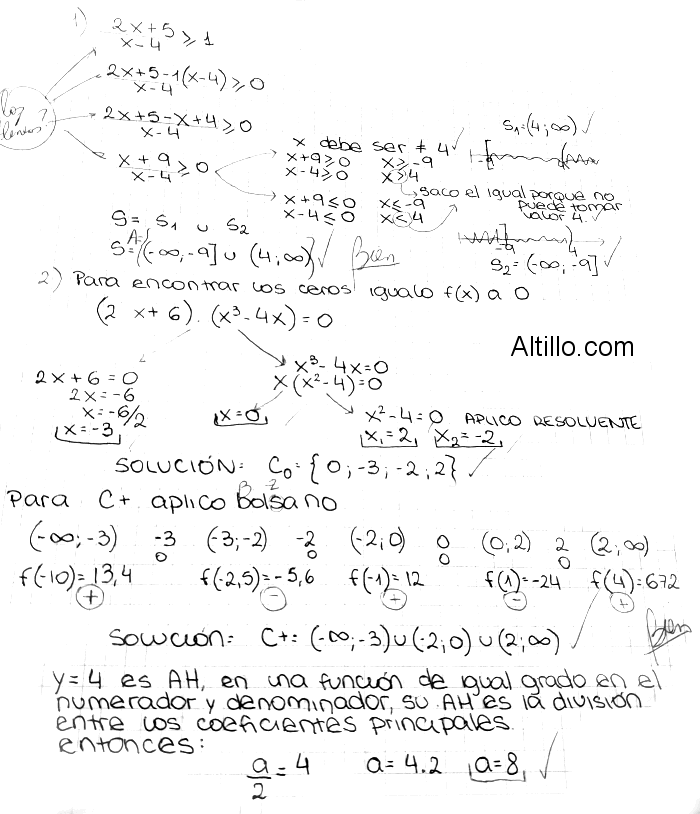 1) 2x+5/x-4 ≥ 1
2x+5-1(x-4)/x-4 ≥ 0
2x+5-x+4/x-4 ≥ 0
x+9/x-4 ≥ 0
x debe ser ≠ 4 ✓
x+9≥0 x≥-9
x-4≥0 x>4
S₁=(4;∞) ✓
saco el igual porque no
puede tomar
valor 4. ✓
x+9≤0 x≤-9
x-4≤0 x<4
-9 4
S₂=(-∞;-9] ✓
S= S₁ ∪ S₂
S=(-∞,-9] ∪ (4;∞) ✓ Bien
2) Para encontrar los ceros igualo f(x) a 0
(2x+6).(x³-4x)=0
Altillo.com
2x+6=0
2x=-6
x=-6/2
x=-3
x³-4x=0
x(x²-4)=0
x=0
x²-4=0 APLICO RESOLVENTE
x₁=2 x₂=-2
SOLUCIÓN: C₀={0;-3;-2;2} ✓
B z
Para C+ aplico bolsano
(-∞;-3) -3 (-3;-2) -2 (-2;0) 0 (0;2) 2 (2;∞)
0 0 0 0
f(-10)=13,4 f(-2,5)=-5,6 f(-1)=12 f(1)=-24 f(4)=672
+ - + - +
SOLUCIÓN: C+: (-∞;-3)∪(-2;0)∪(2;∞) ✓ Bien
y=4 es AH, en una función de igual grado en el
numerador y denominador, su AH es la división
entre los coeficientes principales.
entonces:
a/2=4 a=4.2 a=8 ✓